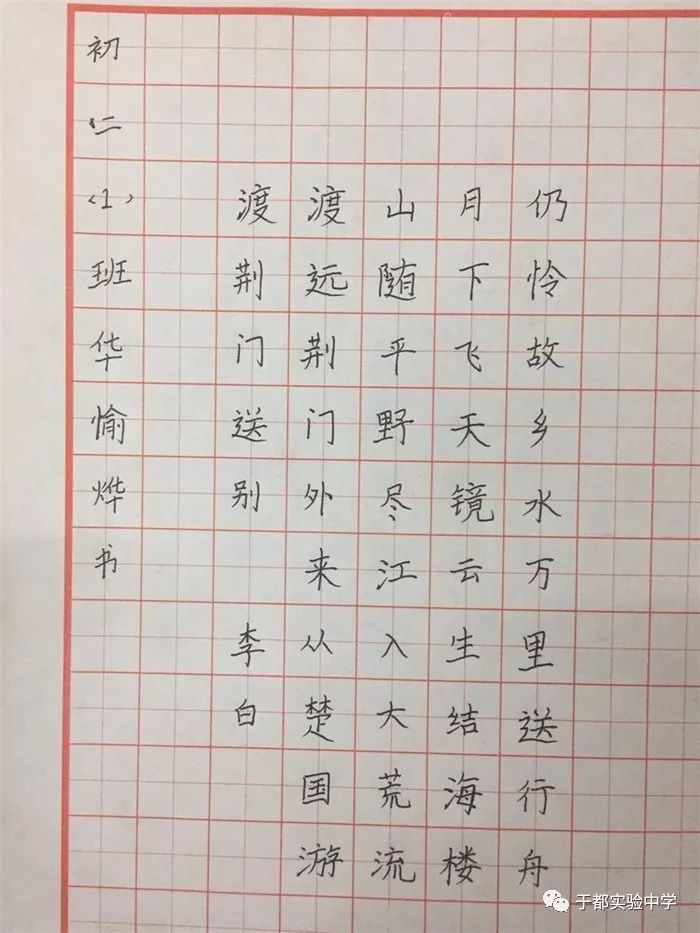 初二（1）班华愉烨书
渡荆门送别 李白
渡远荆门外来从楚国游
山随平野尽江入大荒流
月下飞天镜云生结海楼
仍怜故乡水万里送行舟
于都实验中学